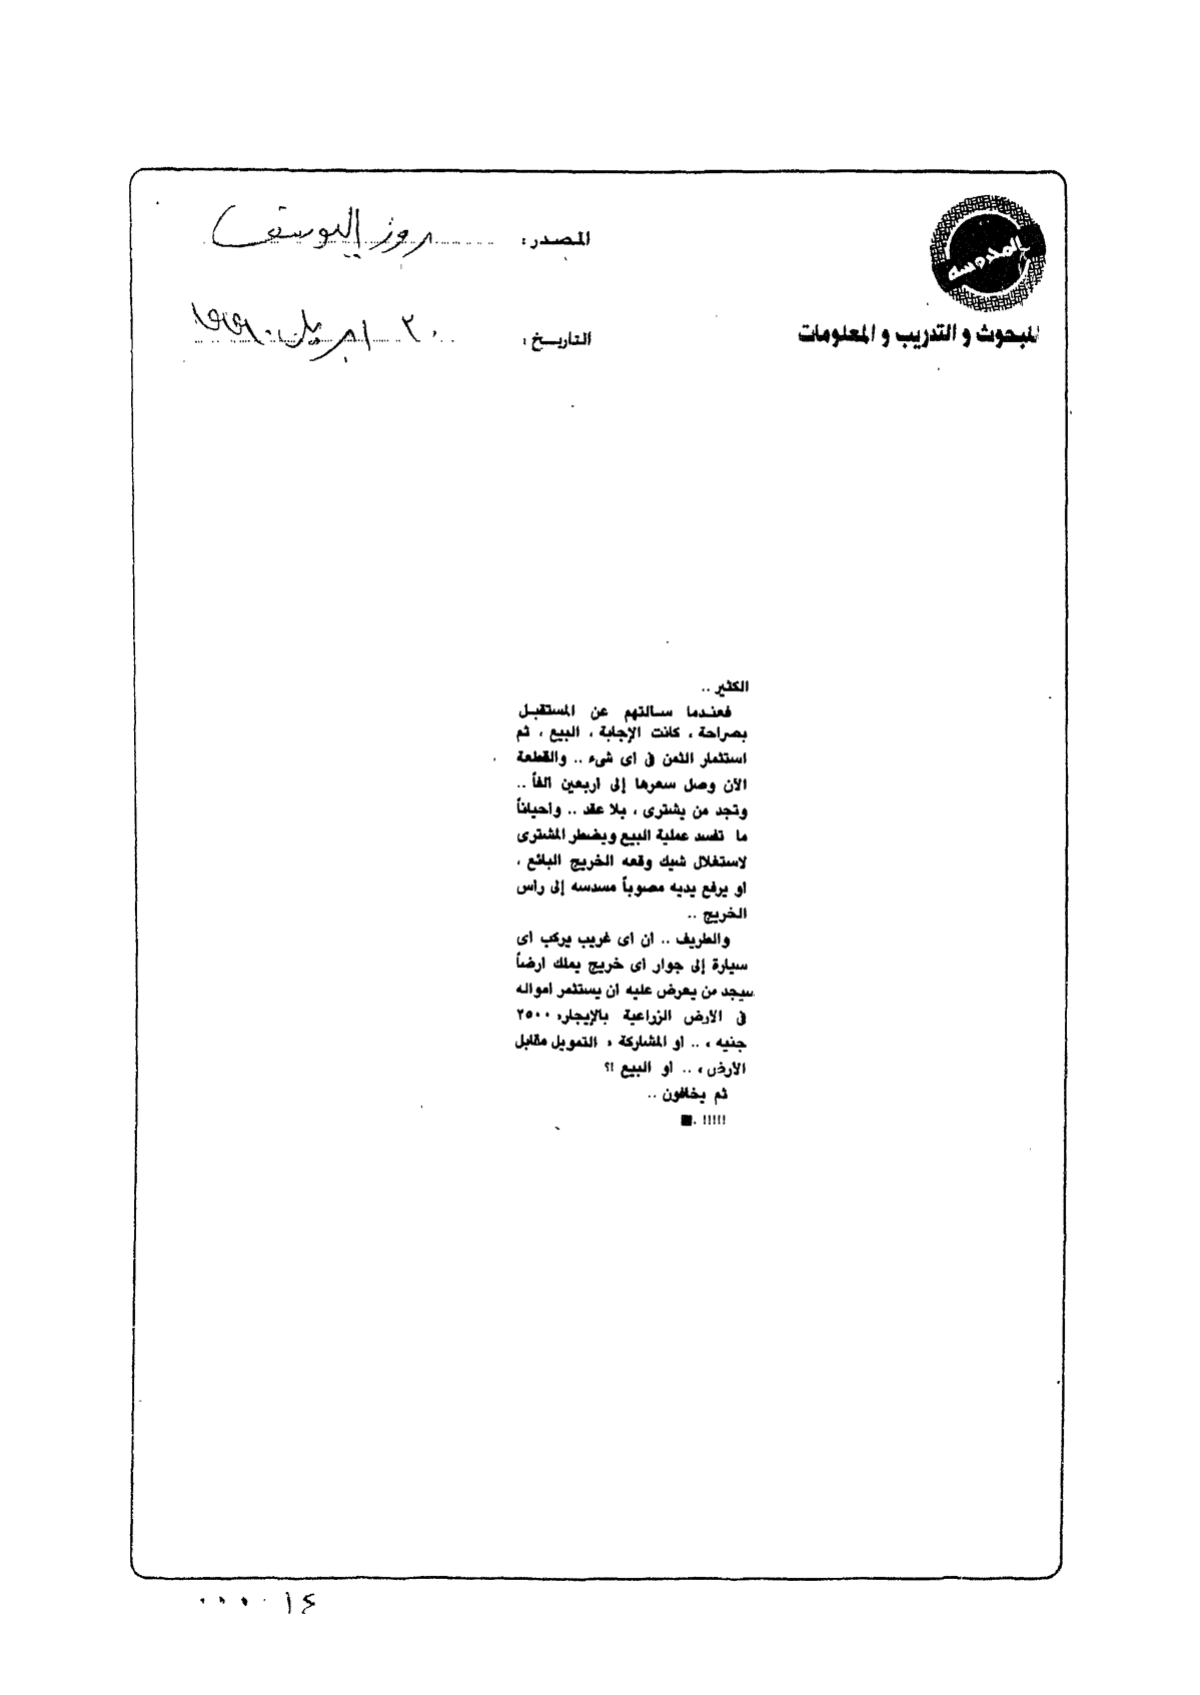 المحروسه
للبحوث و التدريب و المعلومات
المصدر: روز اليوسف
التاريخ: ٢٠ ابريل ١٩٩٠
الكثير ..
فعندما سالتهم عن المستقبل
بصراحة ، كانت الإجابة ، البيع ، ثم
استثمار الثمن فى اى شىء .. والقطعة
الآن وصل سعرها إلى اربعين الفاً ..
وتجد من يشترى ، بلا عقد .. واحياناً
ما تفسد عملية البيع ويضطر المشترى
لاستغلال شيك وقعه الخريج البائع ،
او يرفع يديه مصوباً مسدسه إلى راس
الخريج ..
والطريف .. ان اى غريب يركب اى
سيارة إلى جوار اى خريج يملك ارضاً
سيجد من يعرض عليه ان يستثمر امواله
فى الارض الزراعية بالإيجار، ٢٥٠٠
جنيه ، .. او المشاركة ، التمويل مقابل
الارض ، .. او البيع ؟!
ثم يخافون ..
!!!!! . ■
٠٠٠٠١٤